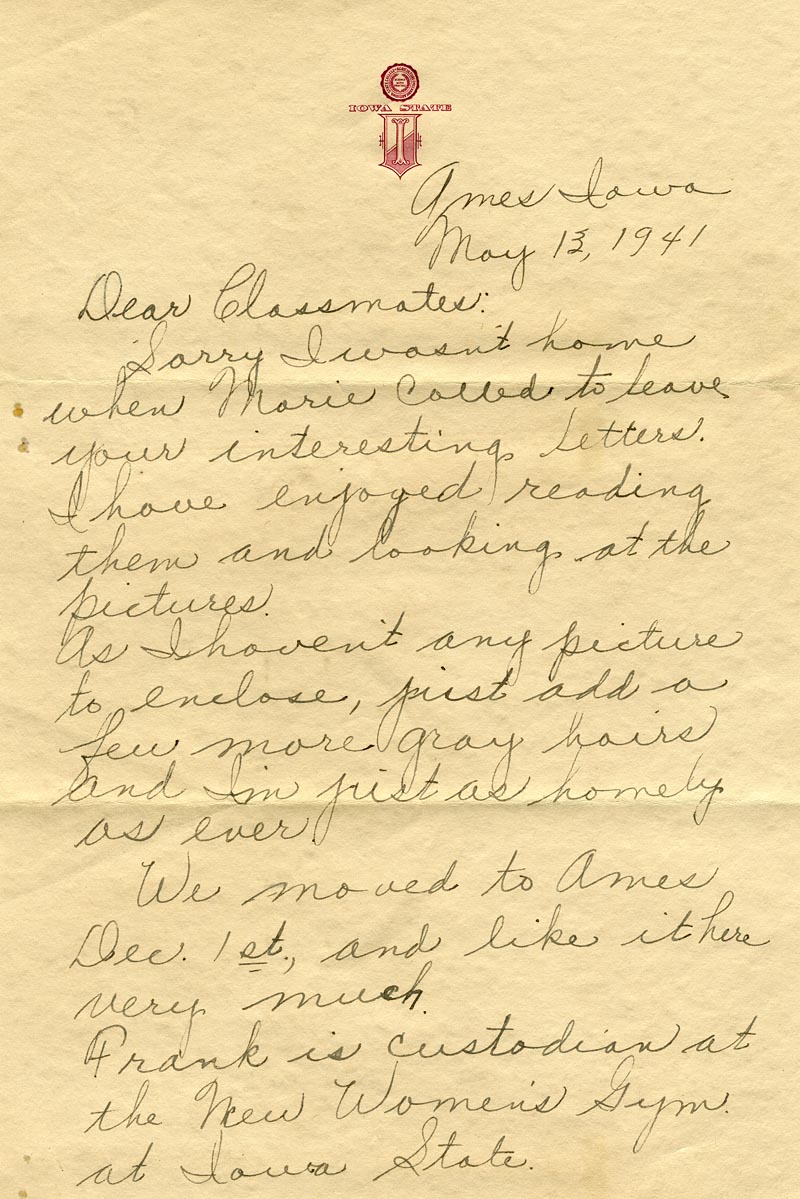 IOWA STATE
I
Ames Iowa
May 13, 1941
Dear Classmates:
Sorry I wasn't home
when Marie called to leave
your interesting letters.
I have enjoyed reading
them and looking at the
pictures.
As I haven't any picture
to enclose, just add a
few more gray hairs
and I'm just as homely
as ever.
We moved to Ames
Dec. 1st., and like it here
very much.
Frank is custodian at
the New Women's Gym.
at Iowa State.